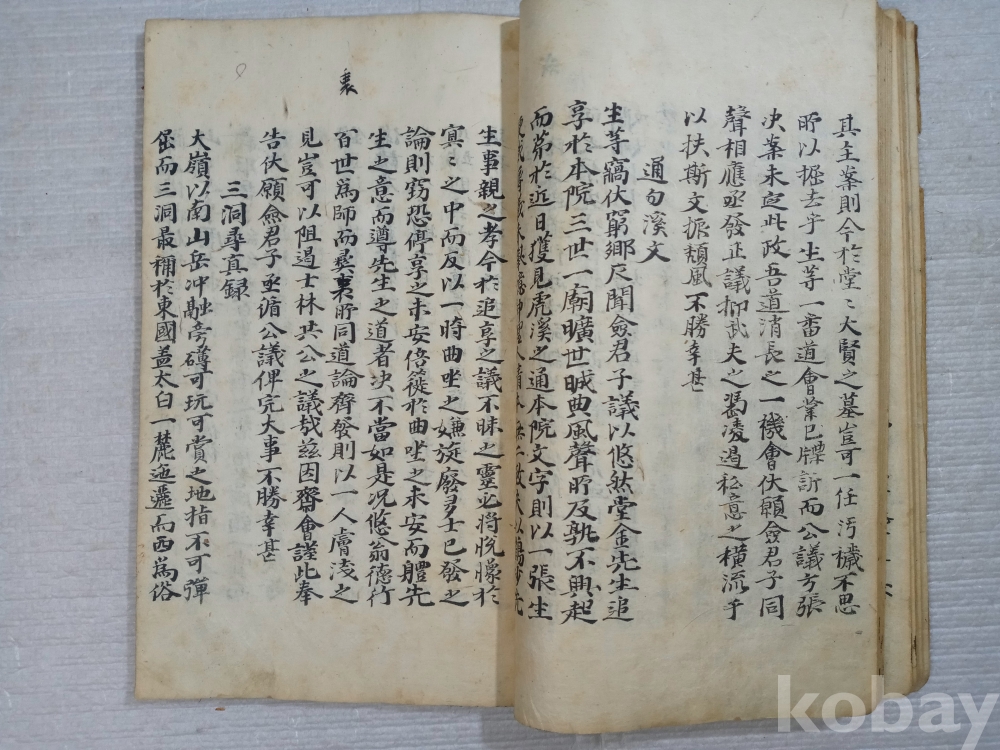 其主案則今於堂〻大賢之墓豈可一任汚穢不思
所以掘去乎生等一番道會業已牒訴而公議方張
决案未定此政吾道消長之一機會伏願僉君子同
聲相應亟發正議抑武夫之馮凌遏私意之橫流乎
以扶斯文振頹風不勝幸甚
通勾溪文
生等竊伏窮鄉凥聞僉君子議以悠然堂金先生追
享於本院三世一廟曠世晠典風聲所及孰不興起
而茀於近日獲見虎溪之通本院文字則以一張生
裏
生事親之孝今於追享之議不昧之靈必將怳朦於
冥〻之中而反以一時曲坐之嫌旋廢多士已發之
論則竊恐停享之未安倍蓰於曲坐之未安而軆先
生之意而遵先生之道者决不當如是况悠翁德行
百世爲師而彛衷所同道論齊發則以一人膚淺之
見豈可以阻遏士林共公之議哉玆因齋會謹此奉
告伏願僉君子亟循公議俾完大事不勝幸甚
三洞尋真録
大嶺以南山岳冲融旁礴可玩可賞之地指不可彈
屈而三洞最稱於東國盖太白一麓迤邐而西爲俗
kobay